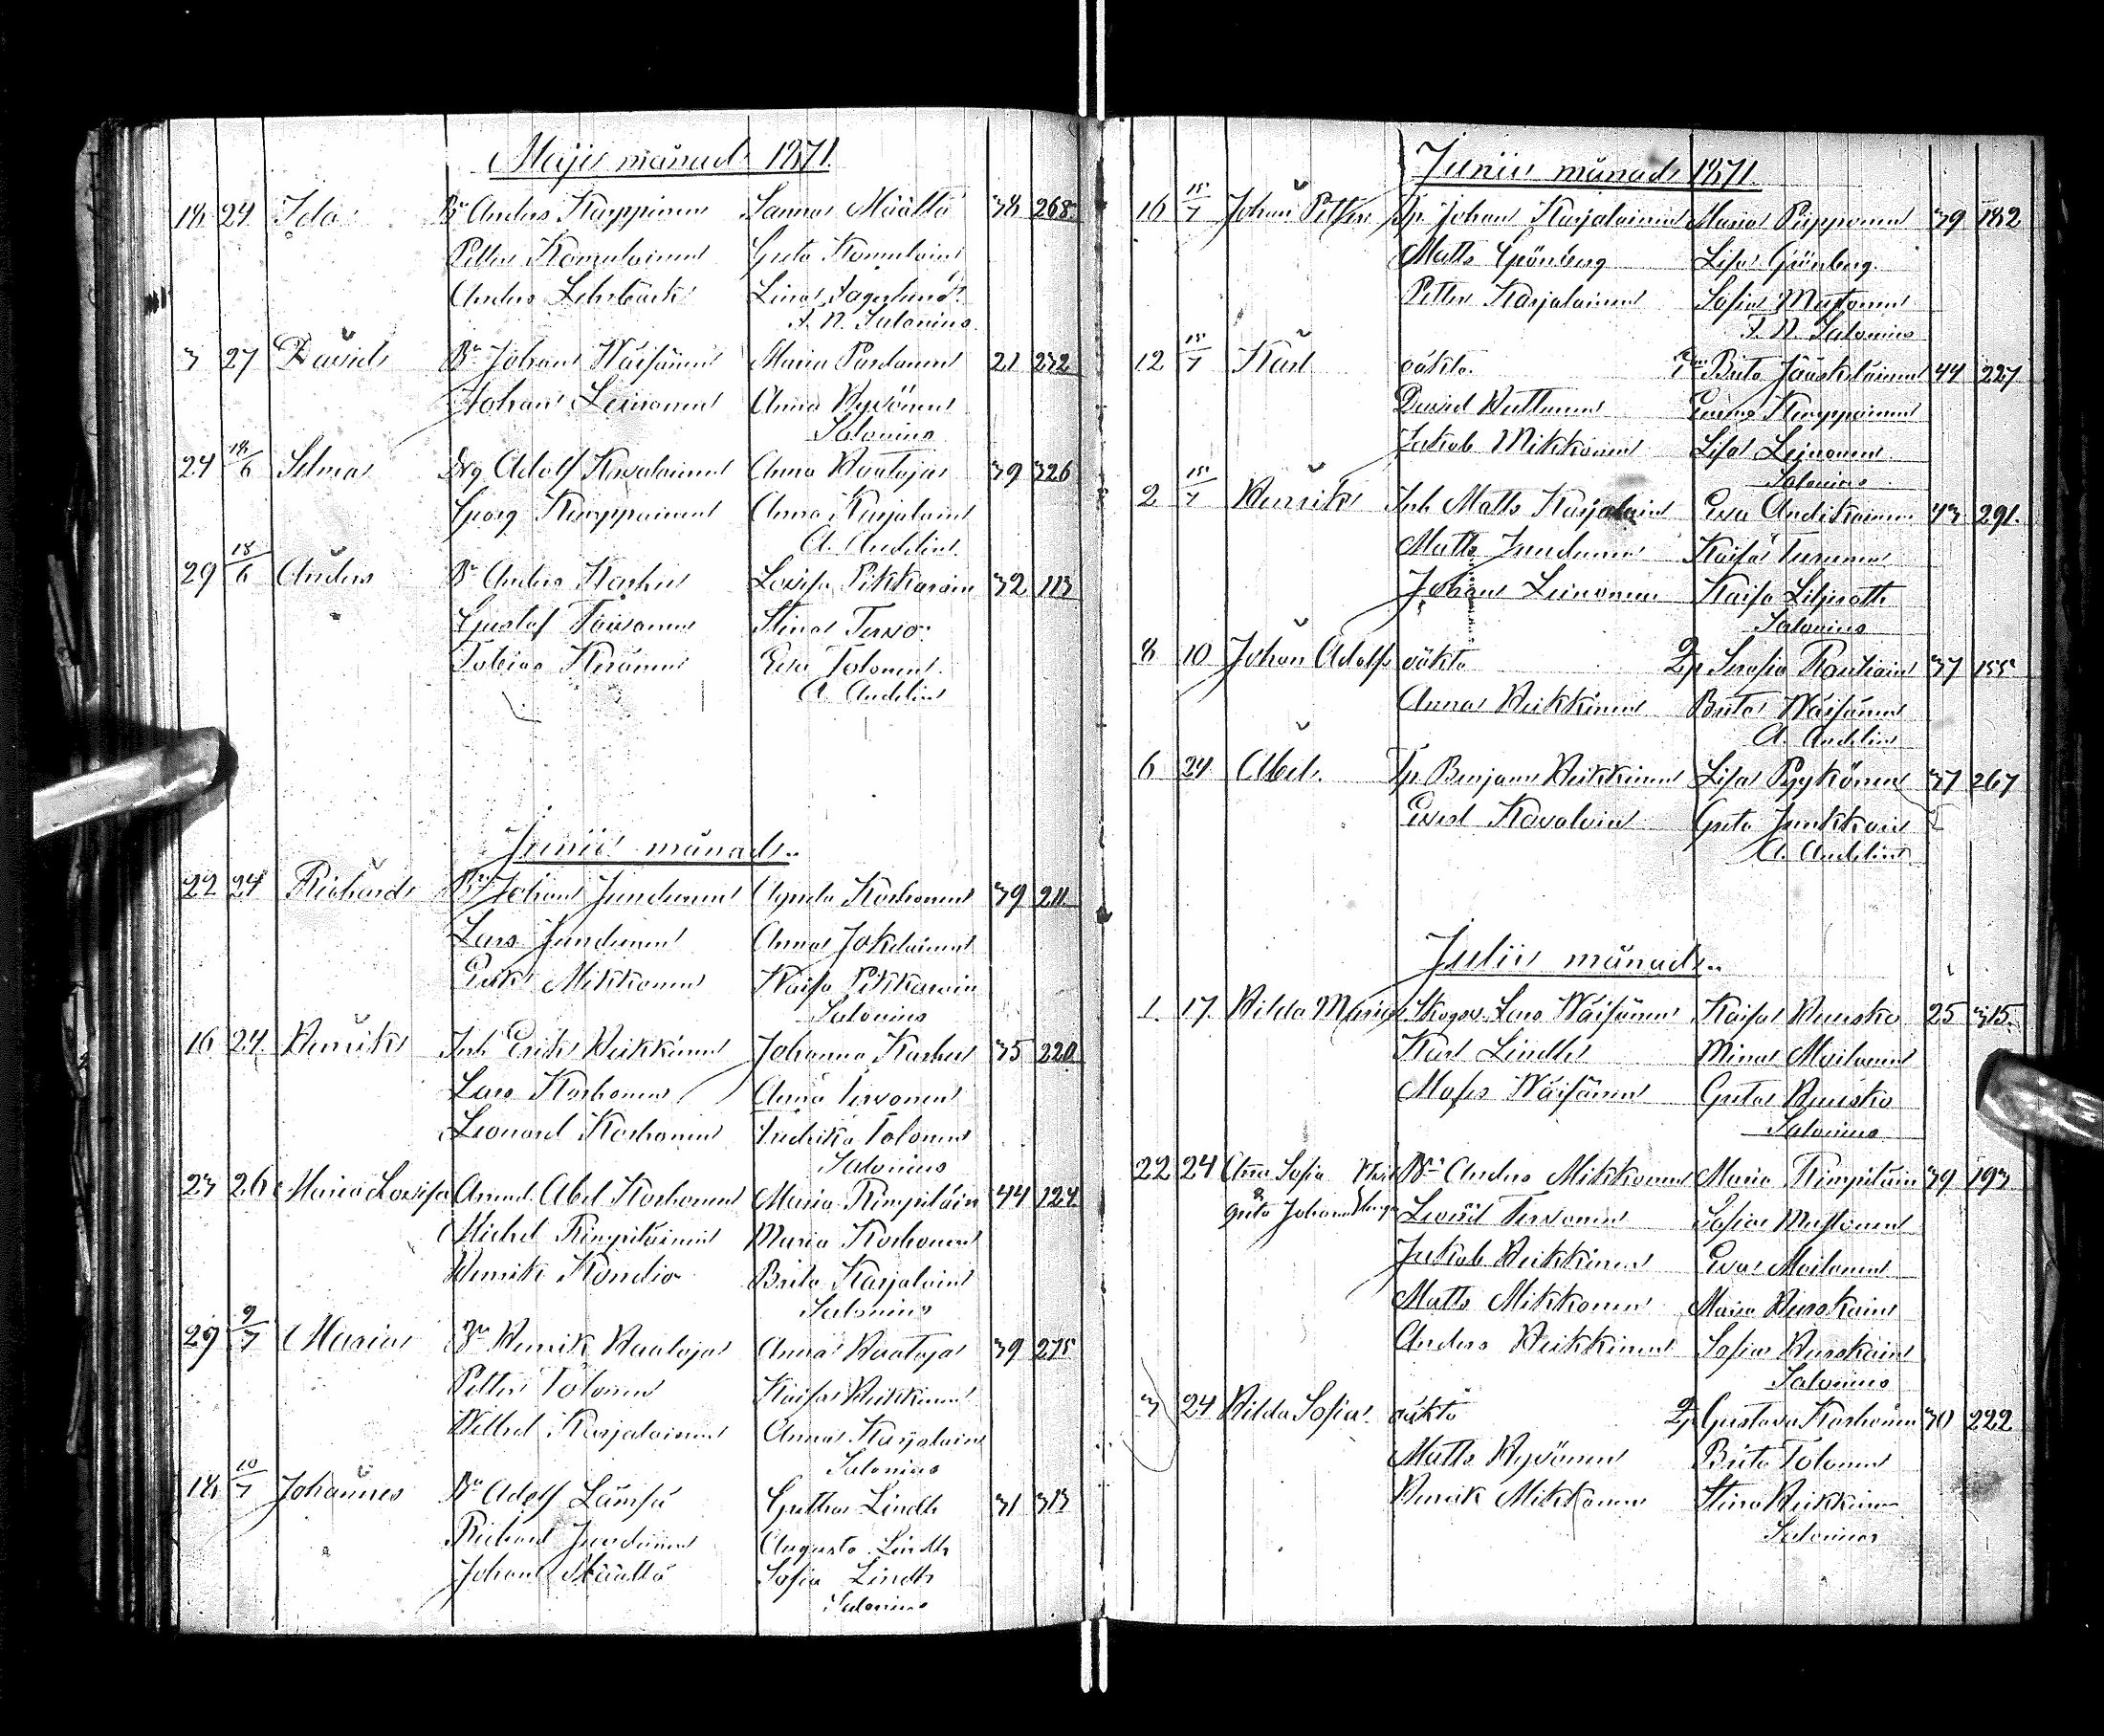 Maji månad 1871.
18 24 Ida Bn Anders Karppinen Sanna Määttä 38 268
Petter Komulainen Greta Komulain
Anders Lehrbäck Lina Fagerlund
F. N. Salonius
3 27 David Bn Johan Wäisänen Maria Pardanen 21 232
Johan Leinonen Anna Hyvönen
Salonius
24 18/6 Selma Drg Adolf Kovalainen Anna Haataja 39 326
Georg Karppinen Anna Karjalain
A. Andelin
29 18/6 Anders Bn Anders Karhu Lovisa Pikkarain 32 113
Gustaf Stina Tervo
Tobias Keränen Eva Tolonen
A. Andelin
Junii månad
22 24 Richard Bn Johan Jundunen Agneta Korhonen 39 211
Lars Juntunen Anna Jokelainen
Erik Mikkonen Kaisa Pikkarain
Salonius
16 24 Henrik Inh Erik Heikkinen Johanna Karhu 35 220
Lars Korhonen Anna Tervonen
Leonard Korhonen Fredrika Tolonen
Salonius
23 26 Maria Lovisa Abel Korhonen Maria Rimpiläin 44 124
Michel Rimpiläinen Maria Korhonen
Henrik Kondio Brita Karjalain
Salonius
29 9/7 Maria Bn Henrik Haataja Anna Haataja 39 275
Petter Tolonen Kaisa Heikkinen
Wilhel Karjalainen Anna Karjalain
Salonius
18 10/7 Johannes Bn Adolf Lämsä Lindh 31 313
Richard Juntunen Augusta Lindh
Johan Määttä Sofia Lindh
Salonius
Junii månad 1871.
16 15/7 Johan Petter Johan Karjalainen Maria Piipponen 39 182
Matts Grönberg Lisa Grönberg
Petter Karjalainen Sofia Mustonen
F. N. Salonius
12 15/7 Karl oäkta Brita Jääskeläinen 44 227
David Huttunen Karppinen
Jakob Mikkonen Lisa Leinonen
Salonius
2 15/7 Henrik Inh Matts Karjalain Eva Andikainen 43 291
Matts Juntunen Kaisa Turunen
Johan Leinonen Kaisa Liljeroth
Salonius
8 10 Johan Adolf oäkta Serafia Rautiain 37 155
Anna Heikkinen Brita Wäisänen
A. Andelin
6 24 Abel Tp Benjam Heikkinen Lisa Pyykönen 37 267
Evert Kovalain Greta Junkkain
A. Andelin
Julii månad
1 17 Hilda Maria Skogsv. Lars Wäisänen Kaisa Hursko 25 315
Karl Lindh Mina Moilanen
Moses Wäisänen Greta Hursko
Salonius
22 24 Anna Sofia Bn Anders Mikkonen Maria Rimpiläin 39 193
& Greta Johanna Tervonen Sofia Mustonen
Jakob Heikkinen Eva Moilanen
Matts Mikkonen Maria Hurskain
Anders Heikkinen Sofia Hurskain
Salonius
3 24 Hilda Sofia oäkta Gustava Korhonen 30 222
Matts Hyvönen Brita Tolonen
Henrik Mikkonen Stina Heikkinen
Salonius